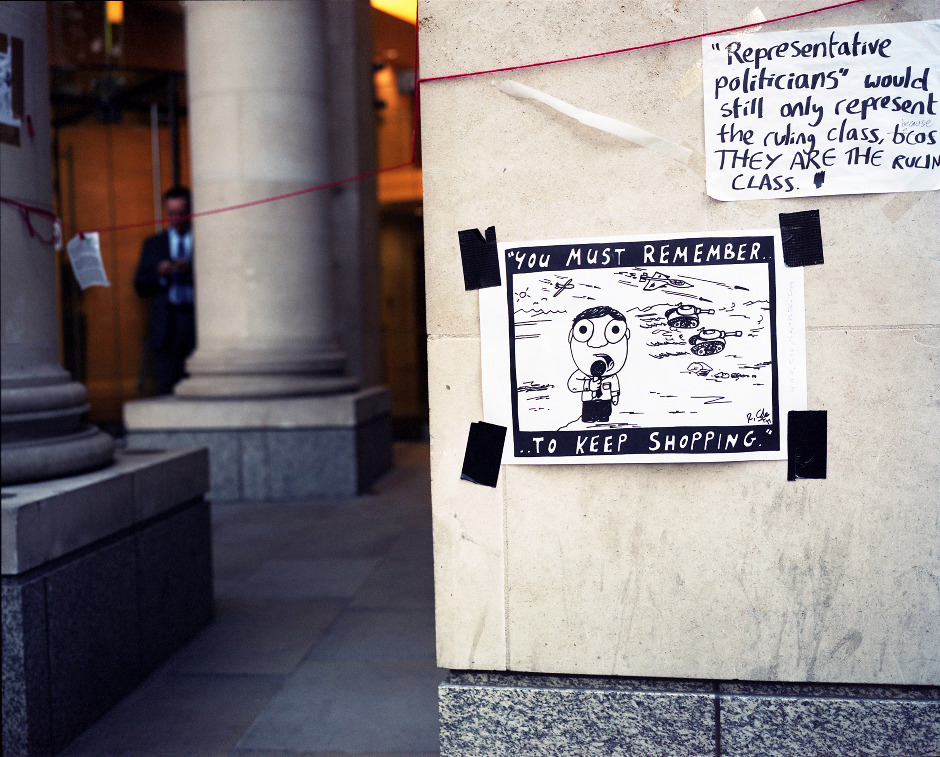 "Representative
politicians" would
still only represent
the ruling class, bcos
because
THEY ARE THE RULIN
CLASS.
"YOU MUST REMEMBER..
..TO KEEP SHOPPING."